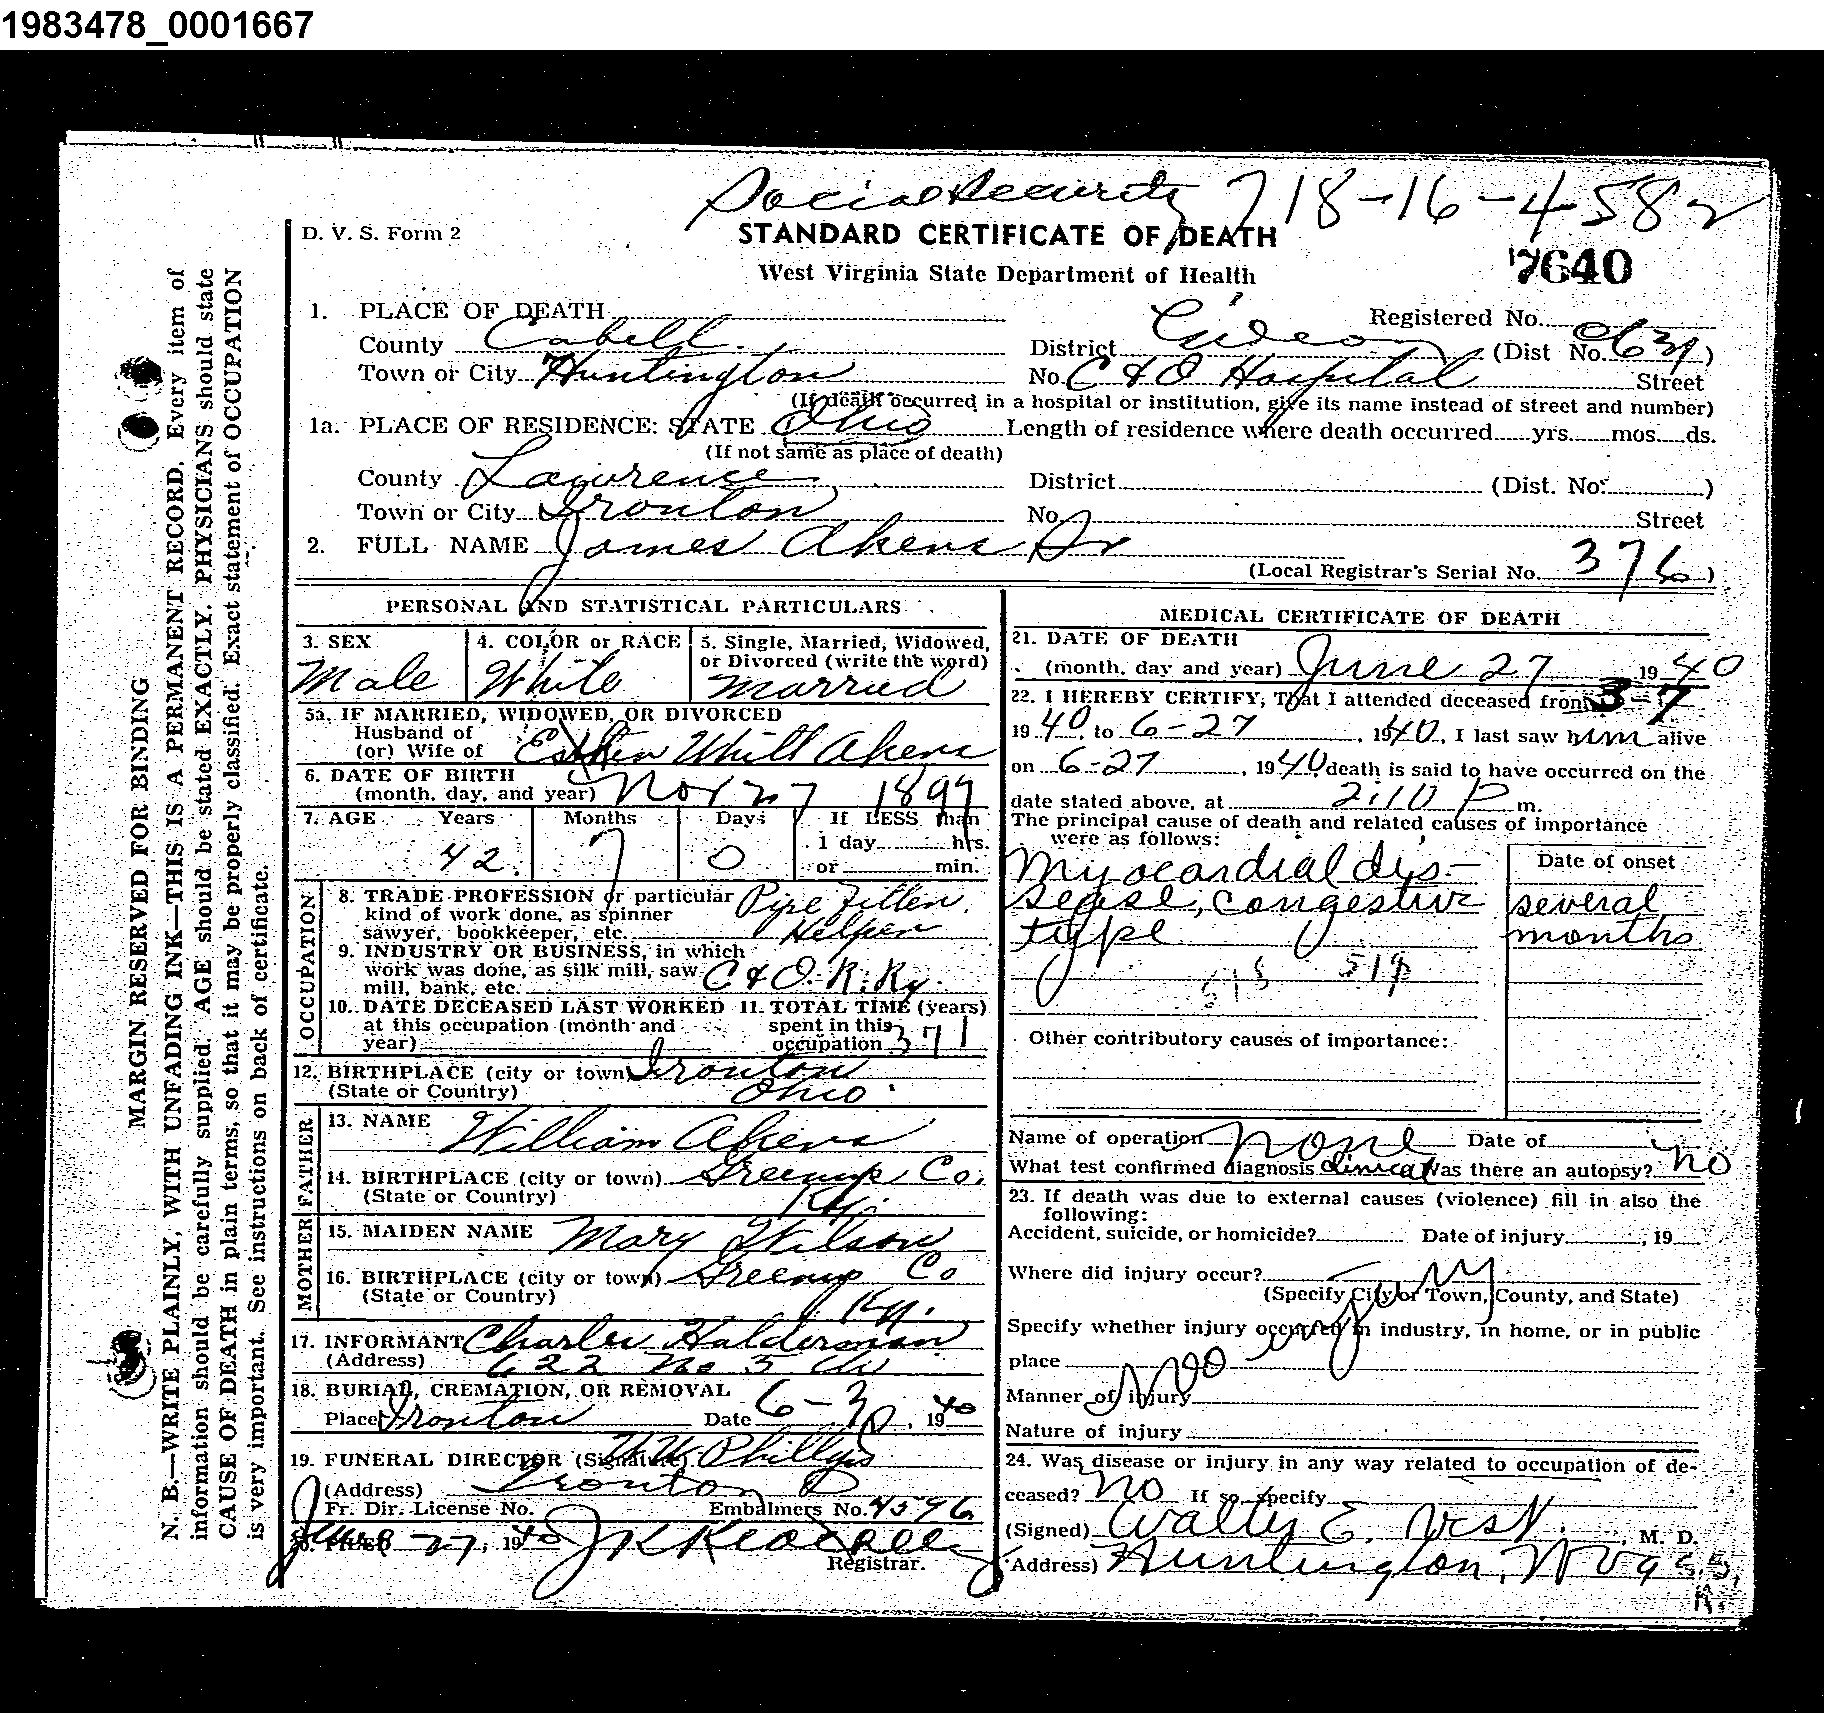 1983478_0001667
Social Security 718-16-4582
D. V. S. Form 2
STANDARD CERTIFICATE OF DEATH
West Virginia State Department of Health
7640
1. PLACE OF DEATH
Registered No.
County Cabell
District Gideon (Dist No. 0631)
Town or City Huntington
No. C & O Hospital Street
(If death occurred in a hospital or institution, give its name instead of street and number)
1a. PLACE OF RESIDENCE: STATE Ohio Length of residence where death occurred yrs. mos. ds.
(If not same as place of death)
County Lawrence District (Dist. No. )
Town or City Ironton No. Street
2. FULL NAME James Akens Sr
(Local Registrar's Serial No. 376)
PERSONAL AND STATISTICAL PARTICULARS
3. SEX
Male
4. COLOR or RACE
White
5. Single, Married, Widowed,
or Divorced (write the word)
Married
5a. IF MARRIED, WIDOWED, OR DIVORCED
Husband of
(or) Wife of Esther Whitt Akens
6. DATE OF BIRTH
(month, day, and year) Nov 27 1897
7. AGE Years Months Days If LESS than
1 day hrs.
42 7 0 or min.
OCCUPATION
8. TRADE PROFESSION or particular
kind of work done, as spinner
sawyer, bookkeeper, etc.
Pipe Fitter
Helper
9. INDUSTRY OR BUSINESS, in which
work was done, as silk mill, saw
mill, bank, etc. C & O. R. Ry.
10. DATE DECEASED LAST WORKED
at this occupation (month and
year)
11. TOTAL TIME (years)
spent in this
occupation 371
12. BIRTHPLACE (city or town) Ironton
(State or Country) Ohio
FATHER
13. NAME William Akens
14. BIRTHPLACE (city or town) Greenup Co.
(State or Country) Ky.
MOTHER
15. MAIDEN NAME Mary Wilson
16. BIRTHPLACE (city or town) Greenup Co
(State or Country) Ky.
17. INFORMANT Charles Halderman
(Address) 622 No 5 
18. BURIAL, CREMATION, OR REMOVAL
Place Ironton Date 6-30, 1940
19. FUNERAL DIRECTOR (Signature) Phillips
(Address) Ironton O
Fr. Dir. License No. Embalmers No. 4596
20. FILED June 27, 1940
Registrar.
MEDICAL CERTIFICATE OF DEATH
21. DATE OF DEATH
(month, day and year) June 27 1940
22. I HEREBY CERTIFY, That I attended deceased from 3-7
1940, to 6-27, 1940, I last saw him alive
on 6-27, 1940, death is said to have occurred on the
date stated above, at 2:10 P m.
The principal cause of death and related causes of importance
were as follows:
Date of onset
Myocardial dis-
sease, congestive
type
several
months
Other contributory causes of importance:
Name of operation none Date of
What test confirmed diagnosis Clinical Was there an autopsy? no
23. If death was due to external causes (violence) fill in also the
following:
Accident, suicide, or homicide? Date of injury , 19
Where did injury occur?
(Specify City or Town, County, and State)
Specify whether injury occurred in industry, in home, or in public
place
no injury
Manner of injury
Nature of injury
24. Was disease or injury in any way related to occupation of de-
ceased? no If so, specify
(Signed) Walter E. Vest, M. D.
(Address) Huntington, W Va
MARGIN RESERVED FOR BINDING
N. B.—WRITE PLAINLY, WITH UNFADING INK—THIS IS A PERMANENT RECORD. Every item of
information should be carefully supplied. AGE should be stated EXACTLY. PHYSICIANS should state
CAUSE OF DEATH in plain terms, so that it may be properly classified. Exact statement of OCCUPATION
is very important. See instructions on back of certificate.